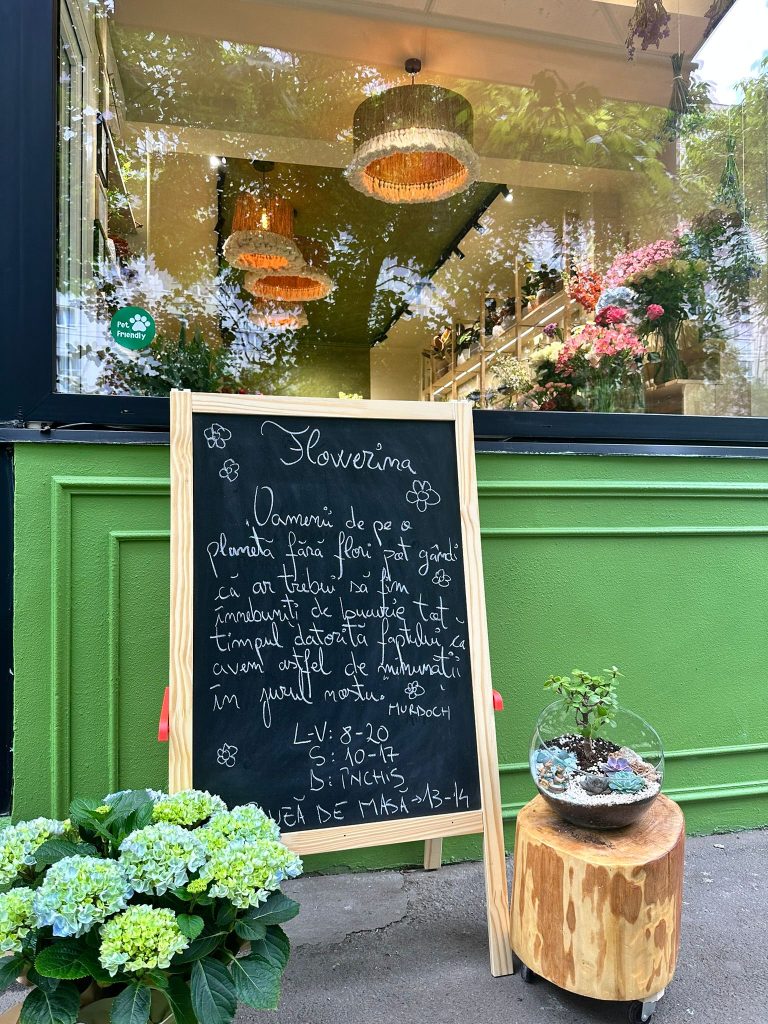 Pet
Friendly
Flowerina
Oamenii de pe o
planetă fără flori pot gândi
că ar trebui să fim
înnebuniți de bucurie tot
timpul datorită faptului că
avem astfel de minunății
în jurul nostru.
MURDOCH
L-V: 8-20
S: 10-17
D: ÎNCHIS
DE MASĂ → 13-14